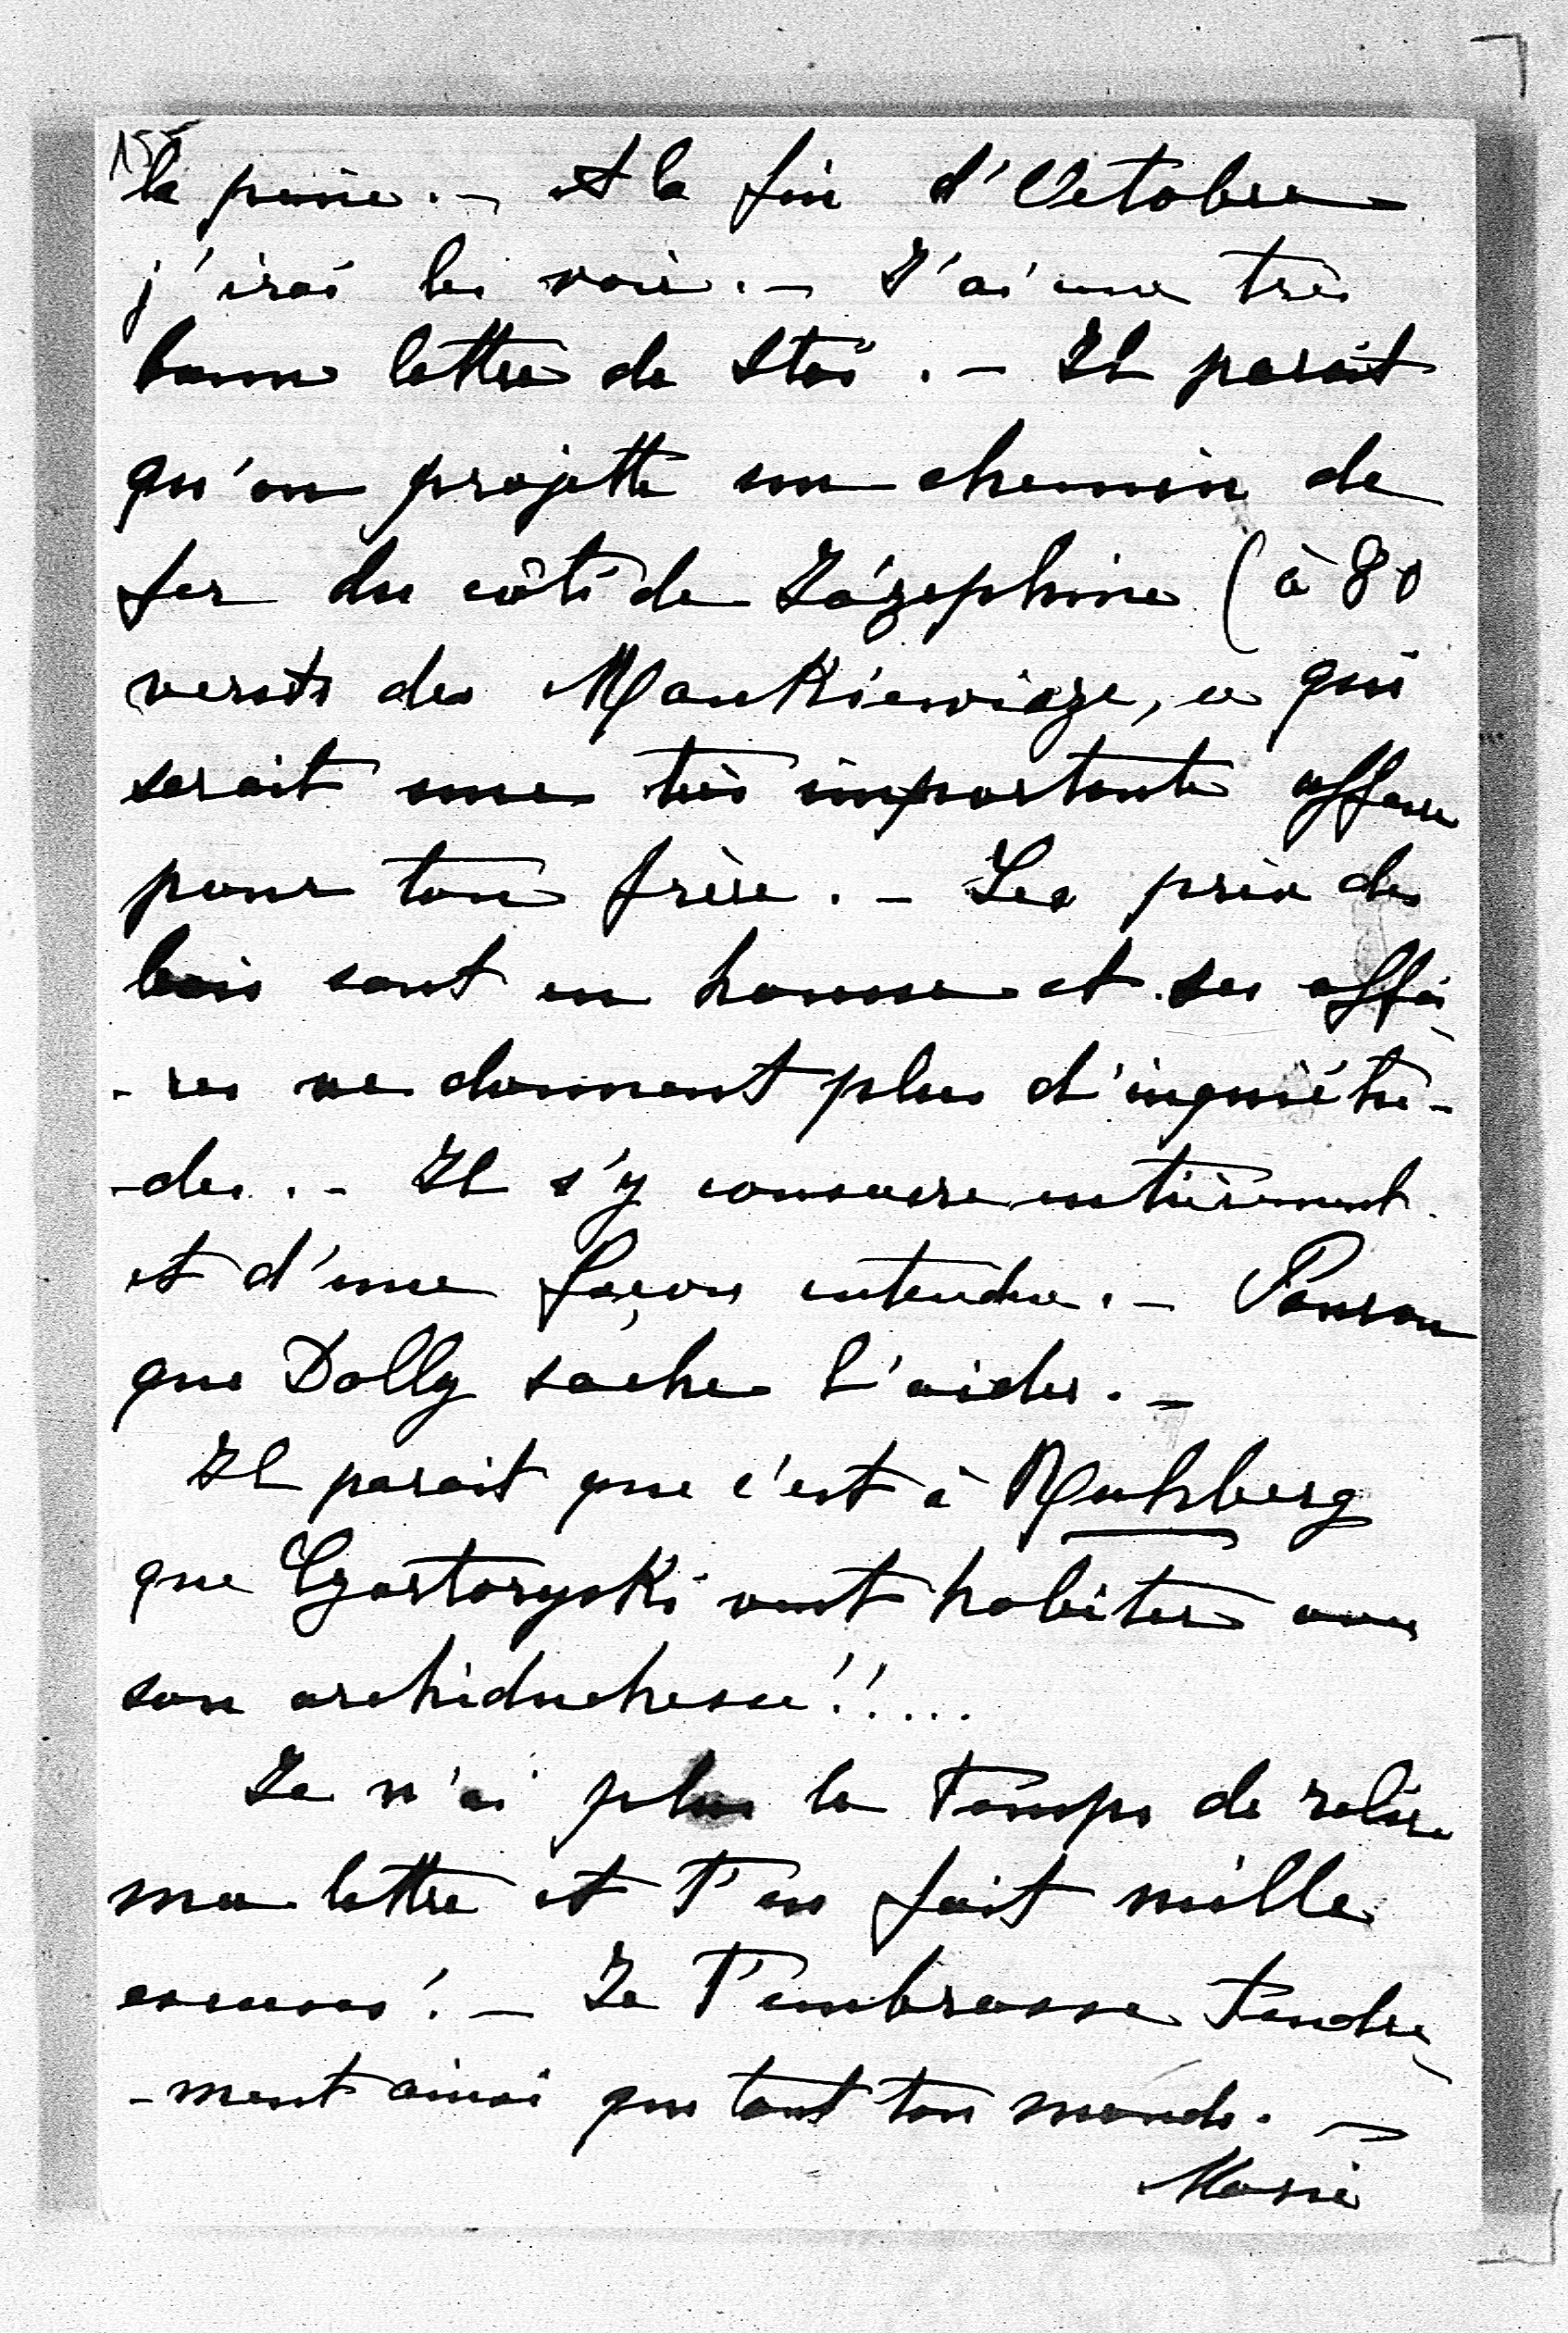 15
la peine. — A la fin d'Octobre
j'irai les voir. — J'ai une très
bonne lettre de Staś. — Il parait
qu'on projette un chemin de
fer du côté de Józephine (à 80
versts de Mankiewicze, ce qui
serait une très importante affaire
pour ton frère. — Les prix des
bois sont en hausse et ses affai
-res ne donnent plus d'inquiétu-
-des. — Il s'y consacre entièrement
et d'une façon entendue. — Pourvu
que Dolly sache l'aider. —
Il parait que c'est à Ruhberg
que Czartoryski veut habiter avec
son archiduchesse!!....
Je n'ai plus le temps de relire
ma lettre et t'en fait mille
excuses! — Je t'embrasse tendre
-ment ainsi que tout ton monde. —
Marie